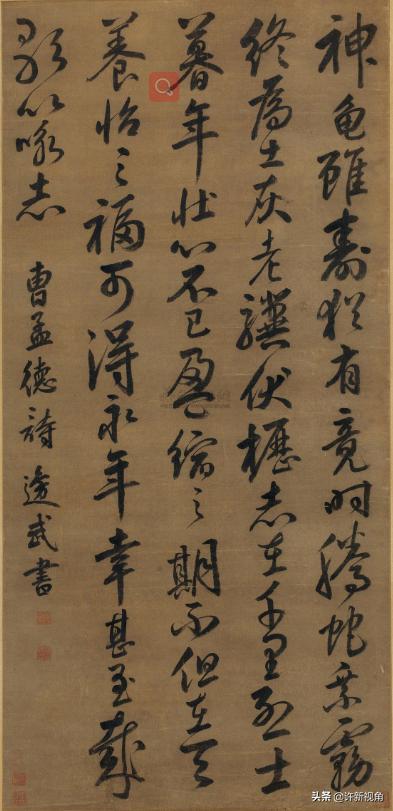 神龜雖壽猶有竟時騰蛇乘霧
終為土灰老驥伏櫪志在千里烈士
暮年壯心不已盈縮之期不但在天
養怡之福可得永年幸甚至哉
歌以詠志 曹孟德詩 武書
头条 @许新视角